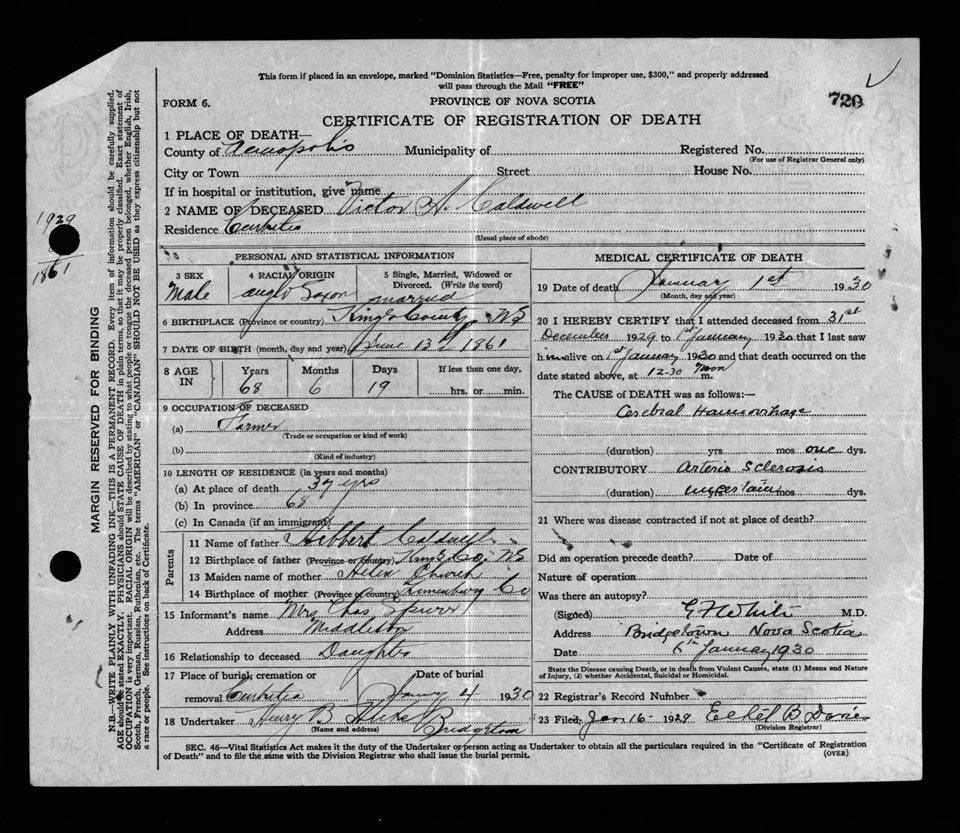 This form if placed in an envelope, marked "Dominion Statistics—Free, penalty for improper use, $300," and properly addressed
will pass through the Mail "FREE"
FORM 6.
PROVINCE OF NOVA SCOTIA
720
CERTIFICATE OF REGISTRATION OF DEATH
1 PLACE OF DEATH—
County of Annapolis Municipality of Registered No.
(For use of Registrar General only)
City or Town Street House No.
If in hospital or institution, give name
2 NAME OF DECEASED Victor H. Caldwell
Residence
(Usual place of abode)
1929
1861
MARGIN RESERVED FOR BINDING
N.B.—WRITE PLAINLY WITH UNFADING INK—THIS IS A PERMANENT RECORD. Every item of information should be carefully supplied.
AGE should be stated EXACTLY. PHYSICIANS should STATE CAUSE OF DEATH in plain terms, so that it may be properly classified. Exact statement of
OCCUPATION is very important. RACIAL ORIGIN will be described by stating to what people or tongue the deceased person belonged, whether English, Irish,
Scotch, French, German, Russian, Ruthenian, etc. The terms "AMERICAN" or "CANADIAN" SHOULD NOT BE USED as they express citizenship but not
a race or people. See instructions on back of Certificate.
PERSONAL AND STATISTICAL INFORMATION
3 SEX
Male
4 RACIAL ORIGIN
Anglo Saxon
5 Single, Married, Widowed or
Divorced. (Write the word)
married
6 BIRTHPLACE (Province or country) Kings County NS
7 DATE OF BIRTH (month, day and year) June 13th 1861
8 AGE IN
Years Months Days If less than one day,
68 6 19 hrs. or min.
9 OCCUPATION OF DECEASED
(a) Farmer
(Trade or occupation or kind of work)
(b)
(Kind of industry)
10 LENGTH OF RESIDENCE (in years and months)
(a) At place of death 37 yrs
(b) In province 68
(c) In Canada (if an immigrant)
Parents
11 Name of father Hibbert Caldwell
12 Birthplace of father (Province or country) Kings Co. NS
13 Maiden name of mother Church
14 Birthplace of mother (Province or country) Lunenburg Co
15 Informant's name Mrs Chas Spurr
Address Middleton
16 Relationship to deceased Daughter
17 Place of burial, cremation or Date of burial
removal Jany 4 1930
18 Undertaker Henry B Hicks Bridgetown
(Name and address)
MEDICAL CERTIFICATE OF DEATH
19 Date of death January 1st 1930
(Month, day and year)
20 I HEREBY CERTIFY that I attended deceased from 31st
December 1929 to 1st January 1930 that I last saw
him alive on 1st January 1930 and that death occurred on the
date stated above, at 12-30 noon m.
The CAUSE of DEATH was as follows:—
Cerebral Haemorrhage
(duration) yrs. mos one dys.
CONTRIBUTORY Arterio Sclerosis
(duration) uncertain mos dys.
21 Where was disease contracted if not at place of death?
Did an operation precede death? Date of
Nature of operation
Was there an autopsy?
(Signed) M.D.
Address Bridgetown Nova Scotia
Date January 1930
State the Disease causing Death, or in death from Violent Causes, state (1) Means and Nature
of Injury, (2) whether Accidental, Suicidal or Homicidal.
22 Registrar's Record Number
23 Filed Jan 16 - 1929 Ethel B
(Division Registrar)
SEC. 46—Vital Statistics Act makes it the duty of the Undertaker or person acting as Undertaker to obtain all the particulars required in the "Certificate of Registration
of Death" and to file the same with the Division Registrar who shall issue the burial permit.
(OVER)